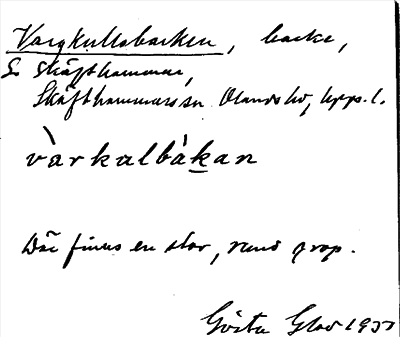 Vargkullabacken, backe,
S Skäfthammar,
Skäfthammars sn. Olands hd, Upps. l.
vàrkalbàkan
Där finns en stor, rund grop.
Gösta